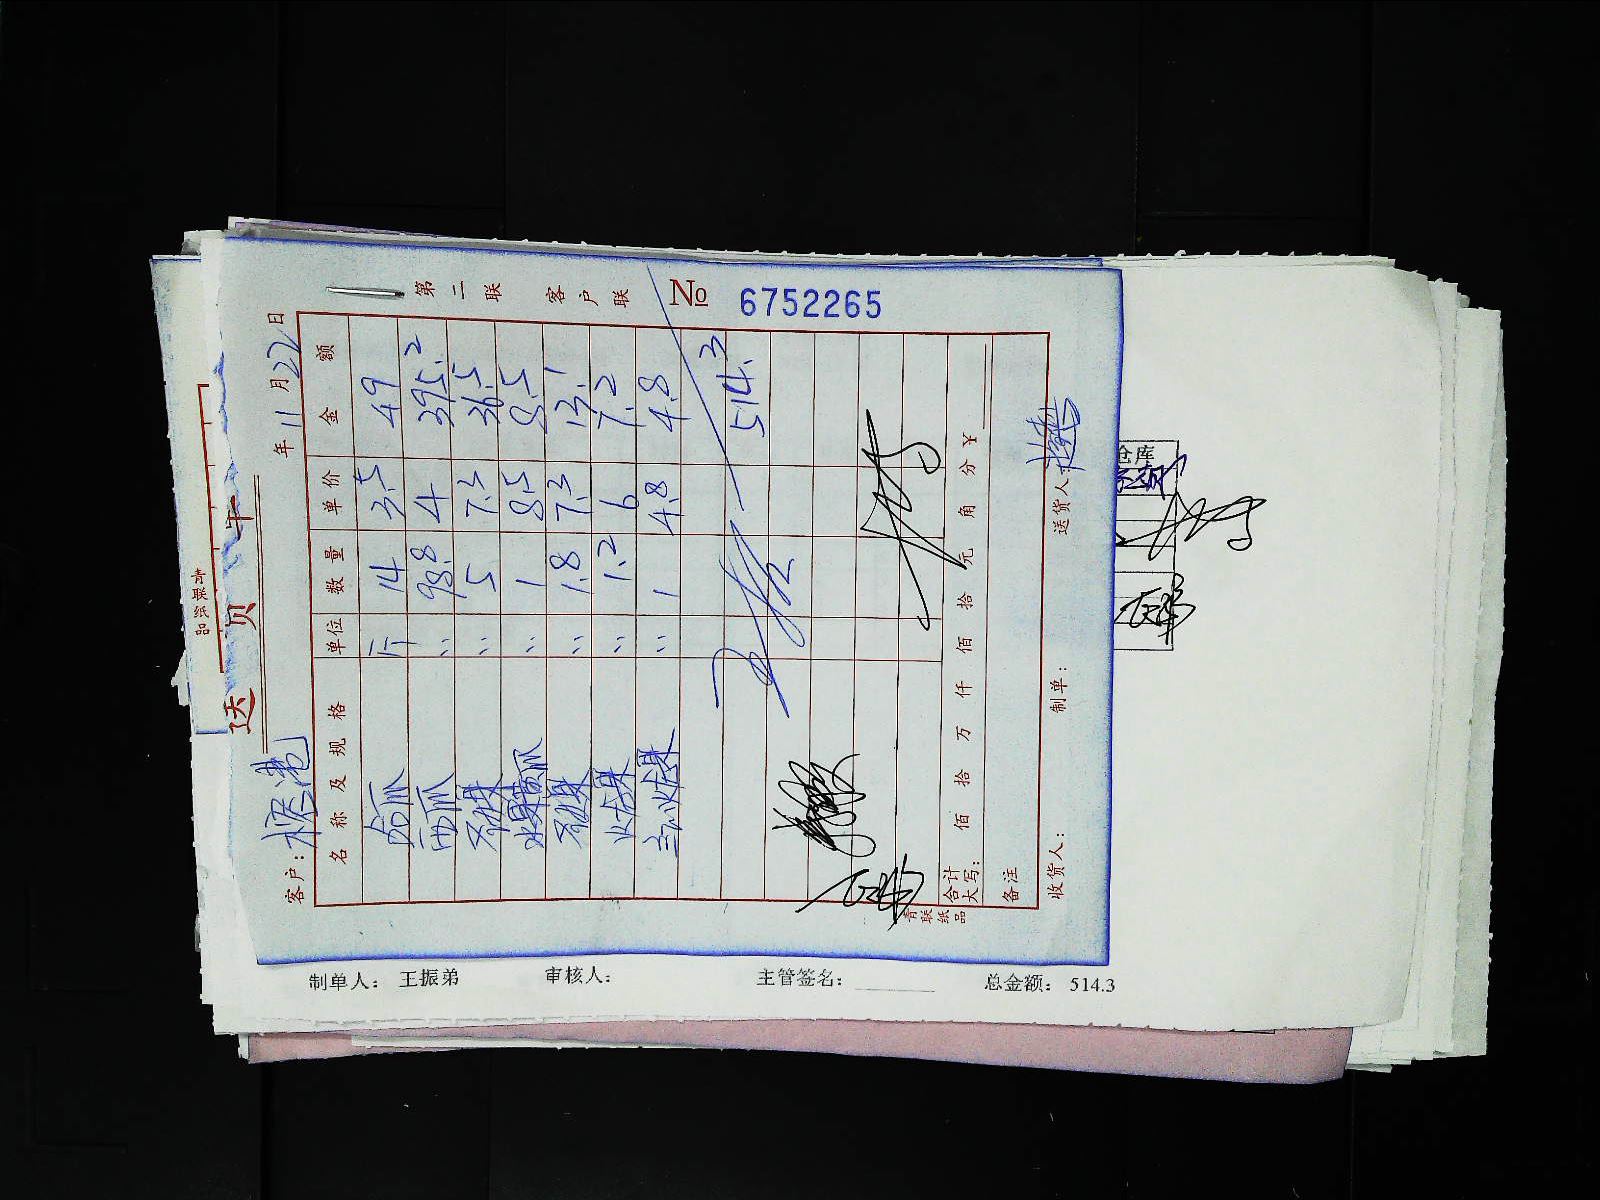 送货单
第二联 客户联 № 6752265
客户: 年 11 月 22 日
名称及规格 单位 数量 单价 金额
白瓜 斤 14 3.5 49
西瓜 〃 98.8 4 395.2
〃 5 7.3 36.5
水果黄瓜 〃 1 8.5 8.5
〃 1.8 7.3 13.1
火龙果 〃 1.2 6 7.2
〃 1 4.8 4.8
514.3
合计大写: 佰 拾 万 仟 佰 拾 元 角 分 ¥
备注
收货人: 制单: 送货人:
青联纸品
青联纸品
仓库
制单人: 王振弟 审核人: 主管签名: 总金额: 514.3